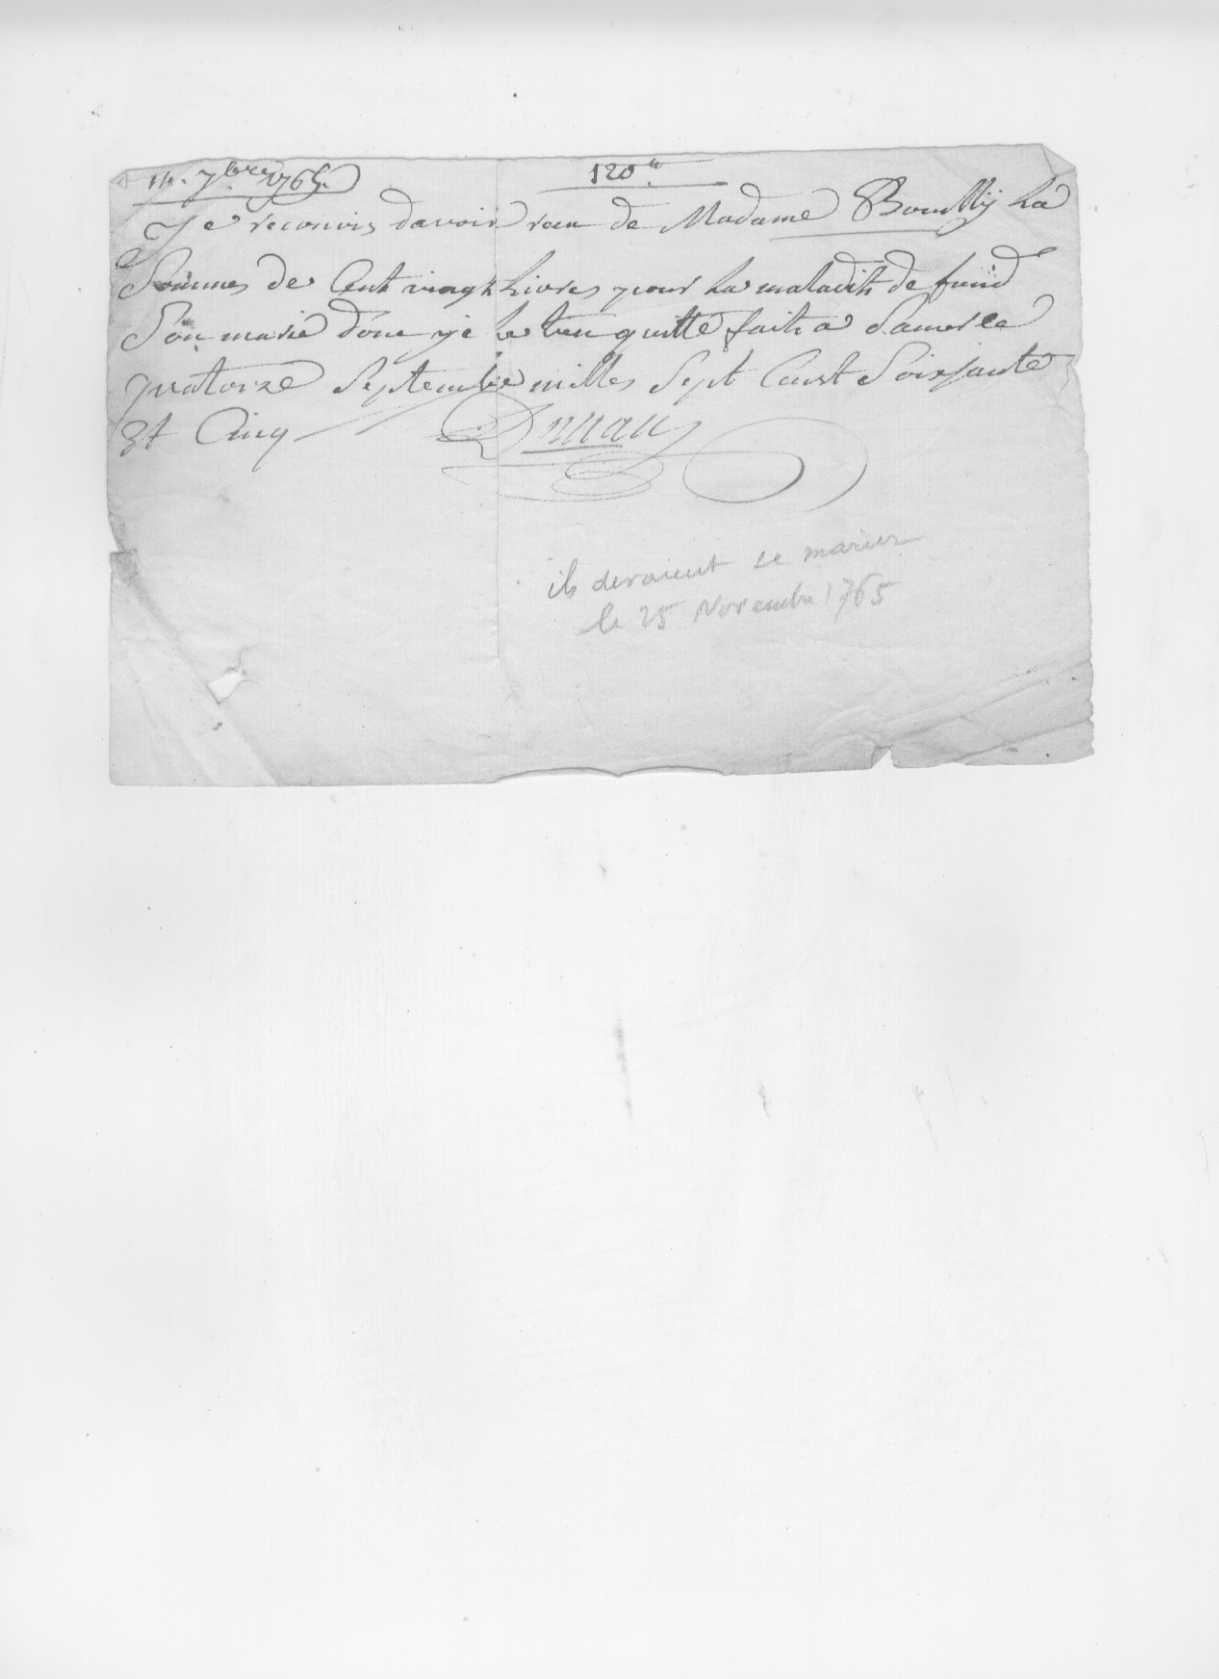 14. 7bre 1765. 120tt
Je reconois davoir recu de Madame Bouilly La
Sommes de Cent vingt Livres pour La maladits de fund
Son marie donc je Le tien quitte fait a Samer le
quatorze Septembre milles Sept Cent Soixsante
Et Cinq
ils devaient se marier
le 25 Novembre 1765